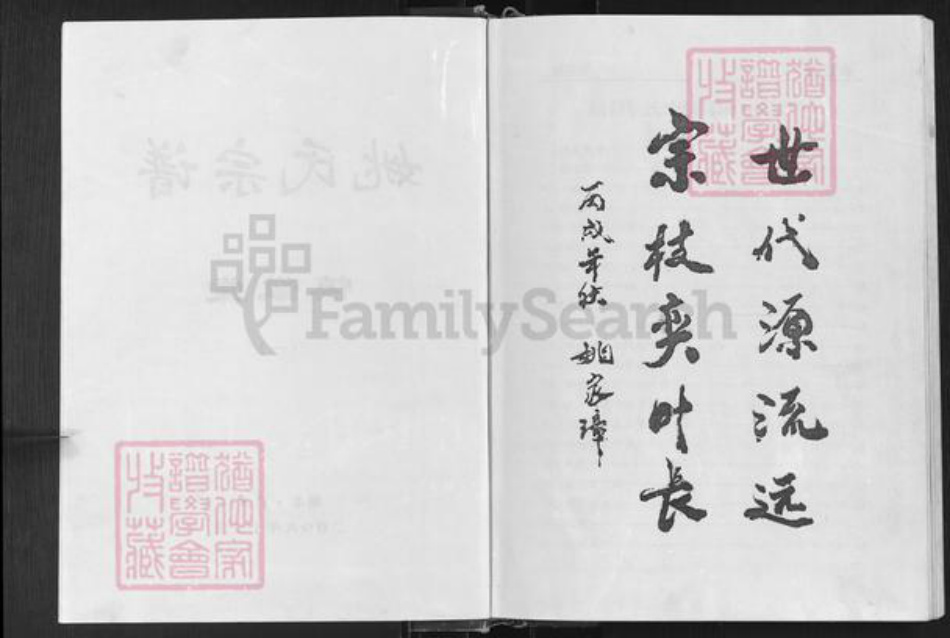 世代源流远
宗枝奕叶长
丙戌年秋 姚家璋
姚氏宗谱
FamilySearch
猶他家
譜學會
收藏
猶他家
譜學會
收藏